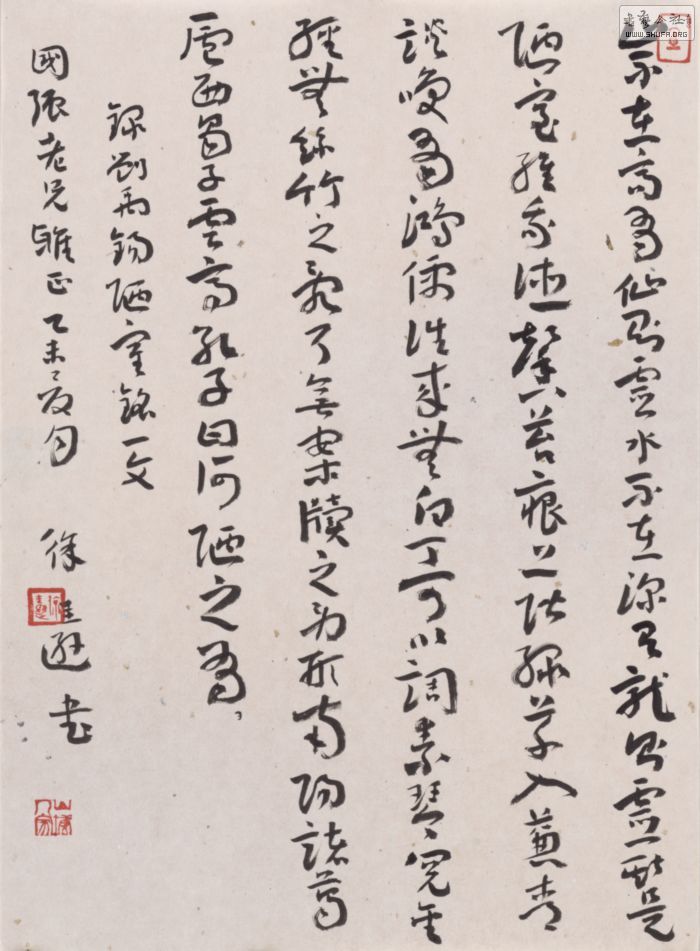 山不在高有仙則靈水不在深有龍則靈斯是
陋室維吾德馨苔痕上階綠草入簾青
談笑有鴻儒往來無白丁可以調素琴閱金
經無絲竹之亂耳無案牘之勞形南陽諸葛
廬西蜀子雲亭孔子曰何陋之有
錄劉禹錫陋室銘一文
國張老兄雅正乙未夏月 徐遜書
书艺公社
WWW.SHUFA.ORG